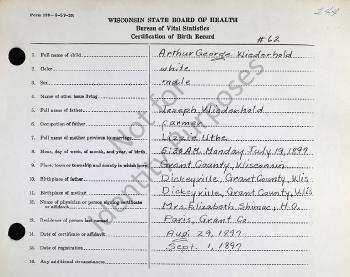 Form 129-5-59-20
248
WISCONSIN STATE BOARD OF HEALTH
Bureau of Vital Statistics
Certification of Birth Record
#62
1. Full name of child Arthur George Wiederhold
2. Color white
3. Sex male
4. Name of other issue living
5. Full name of father Joseph Wiederhold
6. Occupation of father farmer
7. Full name of mother previous to marriage Lizzie Uthe
8. Hour, day, week of month, and year, of birth 6:30 A.M. Monday July 19, 1897
9. Place, town or township and county in which born Grant County, Wisconsin
10. Birthplace of father Dickeyville, Grant County, Wis
11. Birthplace of mother Dickeyville, Grant County, Wis
12. Name of physician or person signing certificate or affidavit Mrs Elizabeth
13. Residence of person last named Paris, Grant Co.
14. Date of certificate or affidavit Aug. 29, 1897
15. Date of registration Sept. 1, 1897
16. Any additional circumstances
Not for
identity purposes